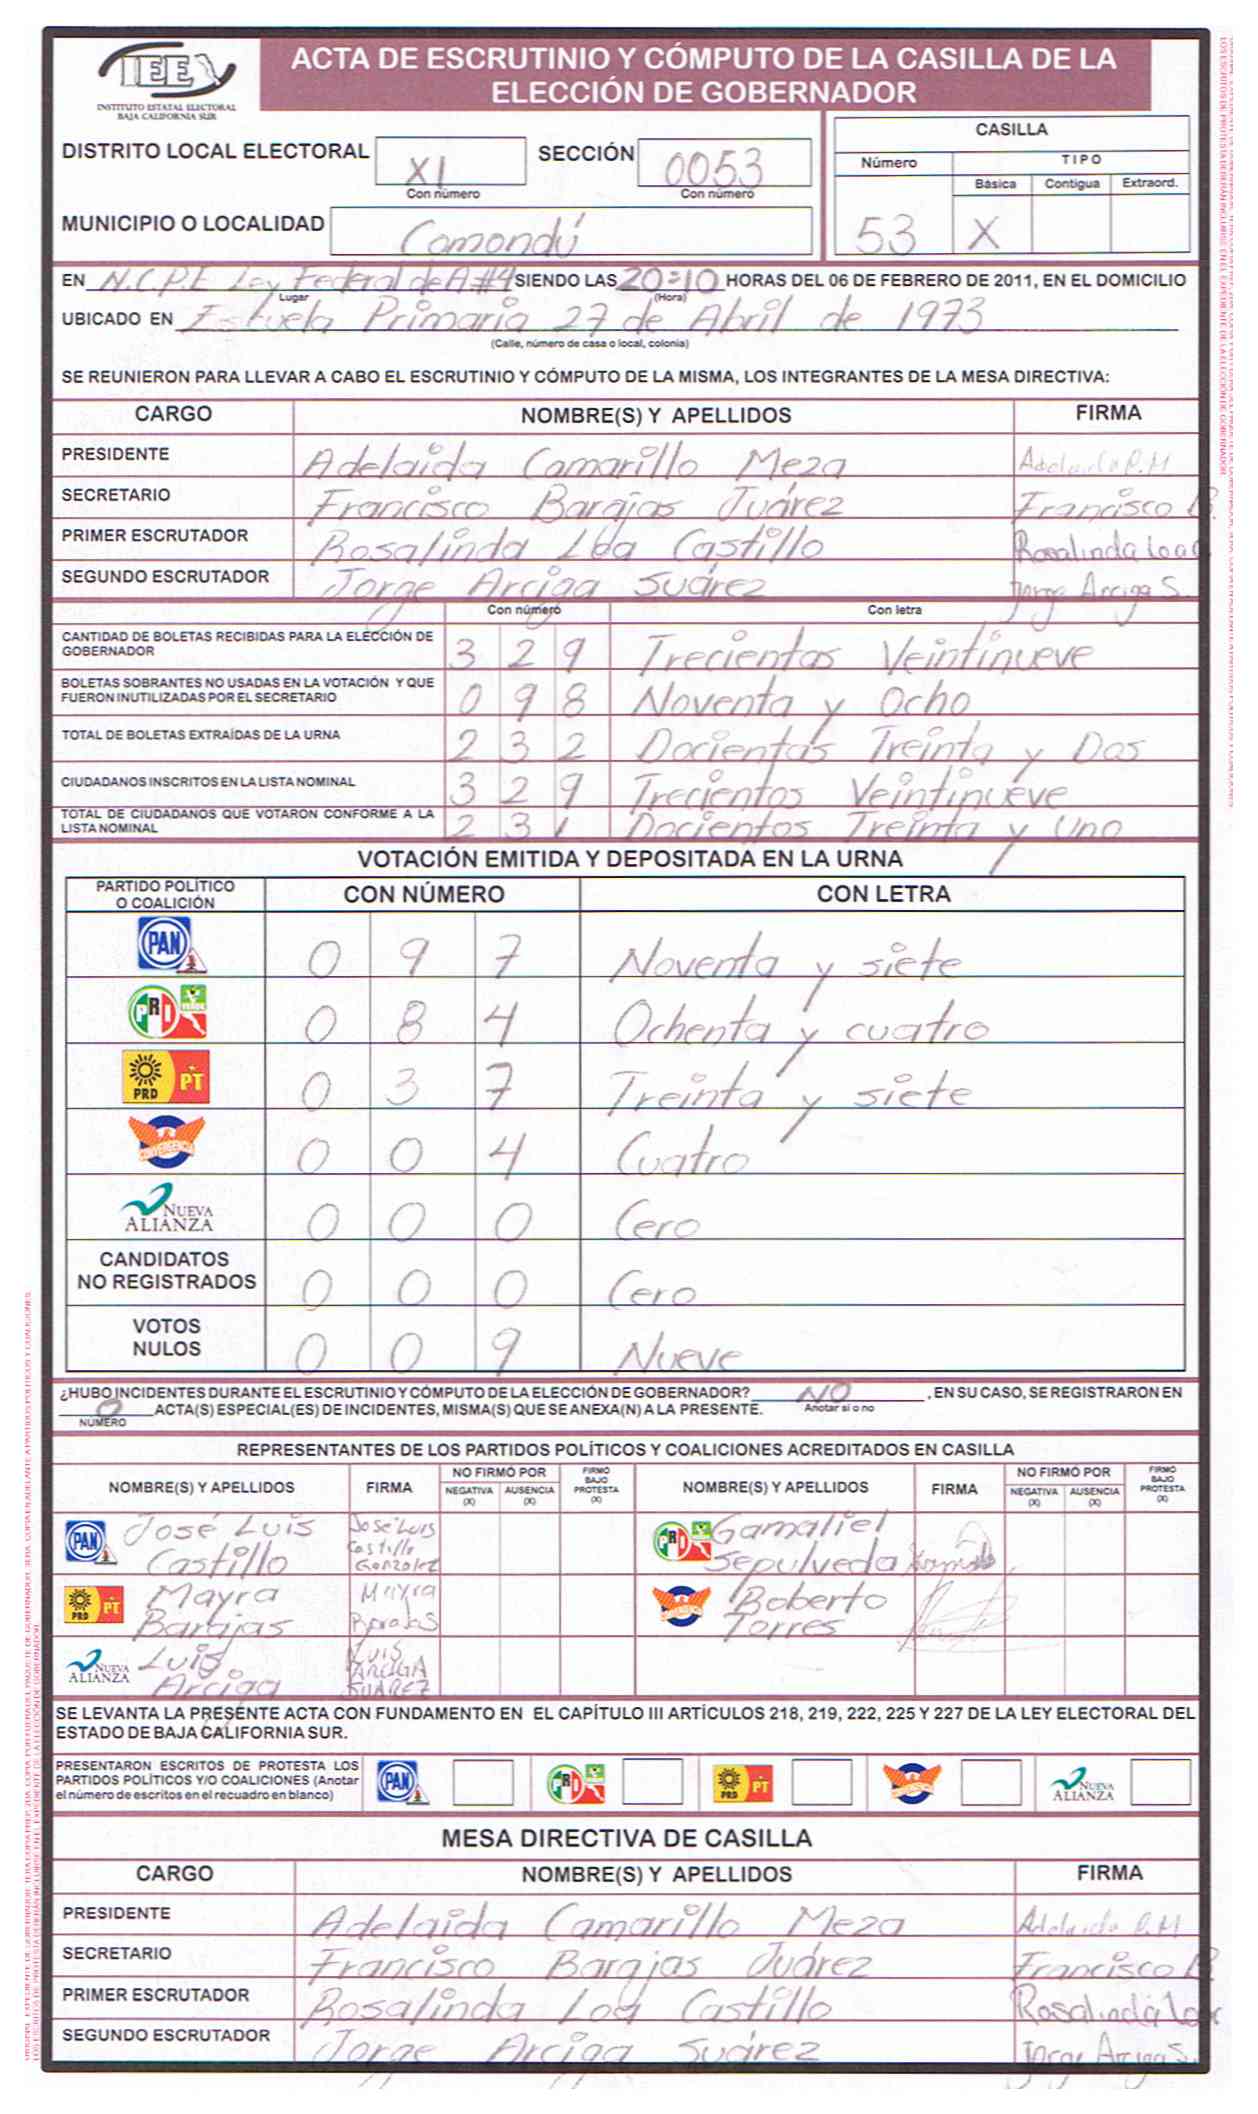 IEE
INSTITUTO ESTATAL ELECTORAL
BAJA CALIFORNIA SUR
ACTA DE ESCRUTINIO Y CÓMPUTO DE LA CASILLA DE LA
ELECCIÓN DE GOBERNADOR
DISTRITO LOCAL ELECTORAL XI SECCIÓN 0053
Con número Con número
MUNICIPIO O LOCALIDAD Comondú
CASILLA
Número TIPO
Básica Contigua Extraord.
53 X
EN N.C.P.E Ley Federal de A #4 SIENDO LAS 20:10 HORAS DEL 06 DE FEBRERO DE 2011, EN EL DOMICILIO
Lugar (Hora)
UBICADO EN Escuela Primaria 27 de Abril de 1973
(Calle, número de casa o local, colonia)
SE REUNIERON PARA LLEVAR A CABO EL ESCRUTINIO Y CÓMPUTO DE LA MISMA, LOS INTEGRANTES DE LA MESA DIRECTIVA:
CARGO NOMBRE(S) Y APELLIDOS FIRMA
PRESIDENTE Adelaida Camarillo Meza Adelaida C.M
SECRETARIO Francisco Barajas Juárez Francisco B.
PRIMER ESCRUTADOR Rosalinda Loa Castillo Rosalinda Loa C
SEGUNDO ESCRUTADOR Jorge Arciga Suárez Jorge Arciga S.
Con número Con letra
CANTIDAD DE BOLETAS RECIBIDAS PARA LA ELECCIÓN DE
GOBERNADOR 3 2 9 Trecientos Veintinueve
BOLETAS SOBRANTES NO USADAS EN LA VOTACIÓN Y QUE
FUERON INUTILIZADAS POR EL SECRETARIO 0 9 8 Noventa y Ocho
TOTAL DE BOLETAS EXTRAÍDAS DE LA URNA 2 3 2 Docientas Treinta y Dos
CIUDADANOS INSCRITOS EN LA LISTA NOMINAL 3 2 9 Trecientos Veintinueve
TOTAL DE CIUDADANOS QUE VOTARON CONFORME A LA
LISTA NOMINAL 2 3 1 Docientos Treinta y Uno
VOTACIÓN EMITIDA Y DEPOSITADA EN LA URNA
PARTIDO POLÍTICO
O COALICIÓN CON NÚMERO CON LETRA
PAN 0 9 7 Noventa y siete
PRI VERDE 0 8 4 Ochenta y cuatro
PRD PT 0 3 7 Treinta y siete
CONVERGENCIA 0 0 4 Cuatro
NUEVA ALIANZA 0 0 0 Cero
CANDIDATOS
NO REGISTRADOS 0 0 0 Cero
VOTOS
NULOS 0 0 9 Nueve
¿HUBO INCIDENTES DURANTE EL ESCRUTINIO Y CÓMPUTO DE LA ELECCIÓN DE GOBERNADOR? NO , EN SU CASO, SE REGISTRARON EN
0 ACTA(S) ESPECIAL(ES) DE INCIDENTES, MISMA(S) QUE SE ANEXA(N) A LA PRESENTE. Anotar si o no
NÚMERO
REPRESENTANTES DE LOS PARTIDOS POLÍTICOS Y COALICIONES ACREDITADOS EN CASILLA
NOMBRE(S) Y APELLIDOS FIRMA NO FIRMÓ POR NEGATIVA (X) AUSENCIA (X) FIRMÓ BAJO PROTESTA (X) NOMBRE(S) Y APELLIDOS FIRMA NO FIRMÓ POR NEGATIVA (X) AUSENCIA (X) FIRMÓ BAJO PROTESTA (X)
PAN José Luis Castillo José Luis Castillo Gonzalez PRI Gamaliel Sepulveda
PRD PT Mayra Barajas Mayra Barajas CONVERGENCIA Roberto Torres
NUEVA ALIANZA Luis Arciga LUIS ARCIGA SUAREZ
SE LEVANTA LA PRESENTE ACTA CON FUNDAMENTO EN EL CAPÍTULO III ARTÍCULOS 218, 219, 222, 225 Y 227 DE LA LEY ELECTORAL DEL
ESTADO DE BAJA CALIFORNIA SUR.
PRESENTARON ESCRITOS DE PROTESTA LOS
PARTIDOS POLÍTICOS Y/O COALICIONES (Anotar
el número de escritos en el recuadro en blanco)
PAN PRI PRD PT NUEVA ALIANZA
MESA DIRECTIVA DE CASILLA
CARGO NOMBRE(S) Y APELLIDOS FIRMA
PRESIDENTE Adelaida Camarillo Meza Adelaida C.M
SECRETARIO Francisco Barajas Juárez Francisco B.
PRIMER ESCRUTADOR Rosalinda Loa Castillo Rosalinda Loa C
SEGUNDO ESCRUTADOR Jorge Arciga Suárez Jorge Arciga S.